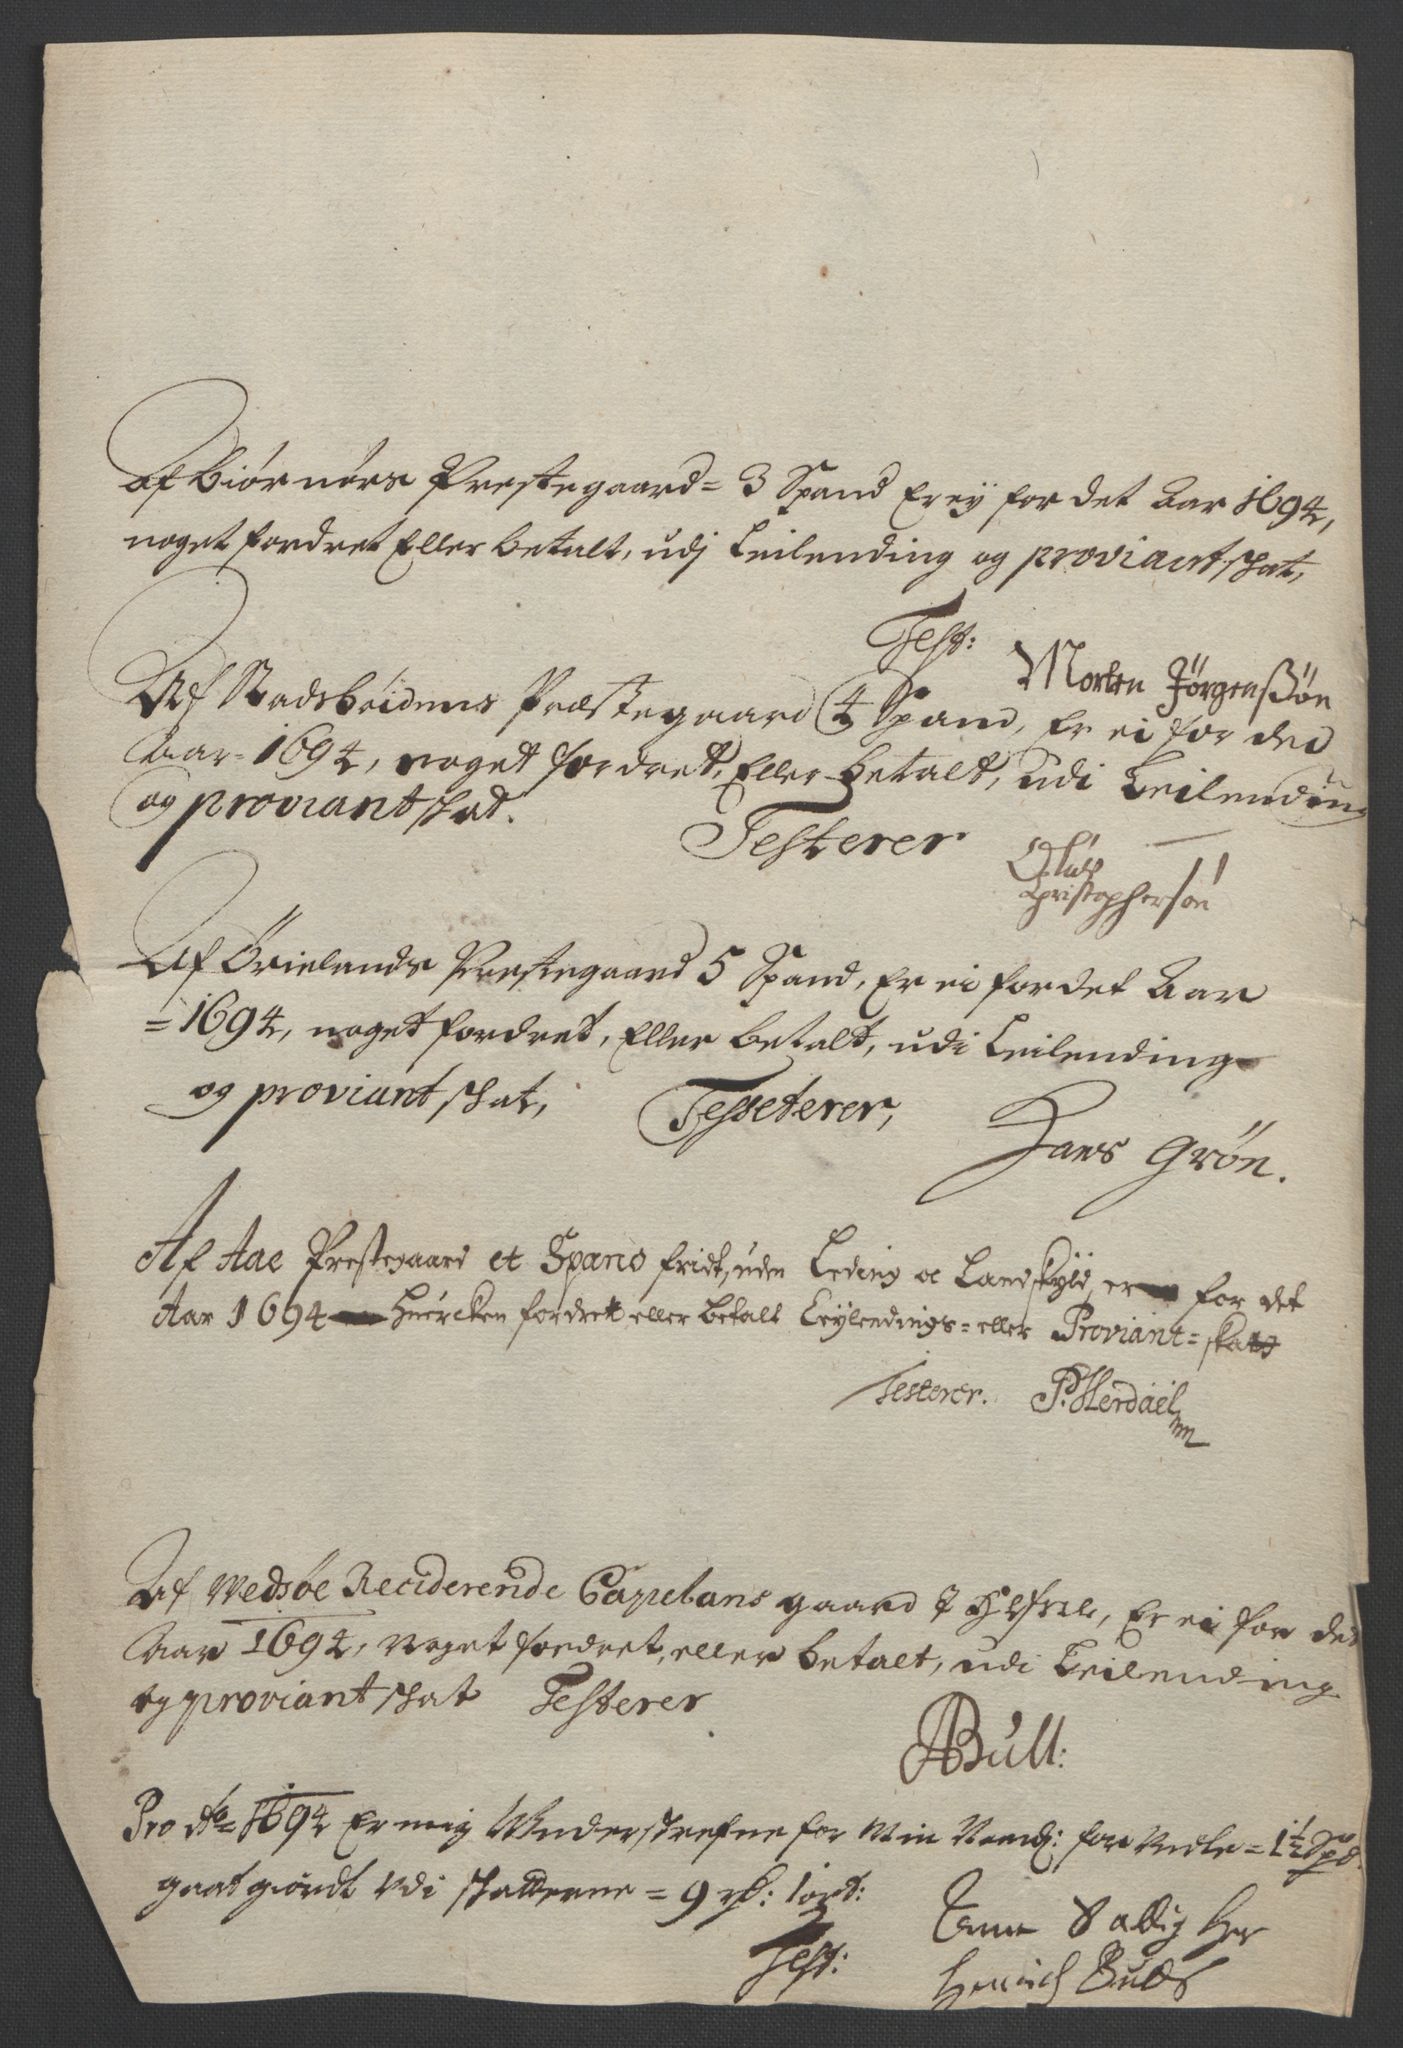 Af Biørnørs Prestegaard = 3 Spand Er ey for det Aar 1694,
noget fordret Eller betalt, udj Leilending og proviant skat,
Test: Morten Jörgenßön
Af Stadsbøidens Præstegaard 4 Spand, Er ei for ded
Aar = 1694, noget fordret, Eller betalt, udi Leilending
og proviant skat.
Testerer Oluf
Christophersøn
Af Ørielands Prestegaard 5 Spand, Er ei for det Aar
= 1694, noget fordret, Eller betalt, udi Leilending
og proviant skat, Testeterer,
Hans Grøn.
Af Aae Prestegaard et Spand fridt, uden Leding oc Landskyld, er for det
Aar 1694 huercken fordret eller betalt Leylendings = eller Proviant = skatt
Testerer. P. Herdael
Af Wedsøe Reciderende Capelans gaard 2 , Er ei for det
Aar 1694, noget fordret, eller betalt, udi Leilending
og proviant skat Testerer
ABull:
Pro Ao = 1694 Er mig Underskrefne for Min for = 1½ Spd.
gaat giordt Udi skatterne = 9 rd: 1 ort:
Test: Sallig Her
Henrich Bulls